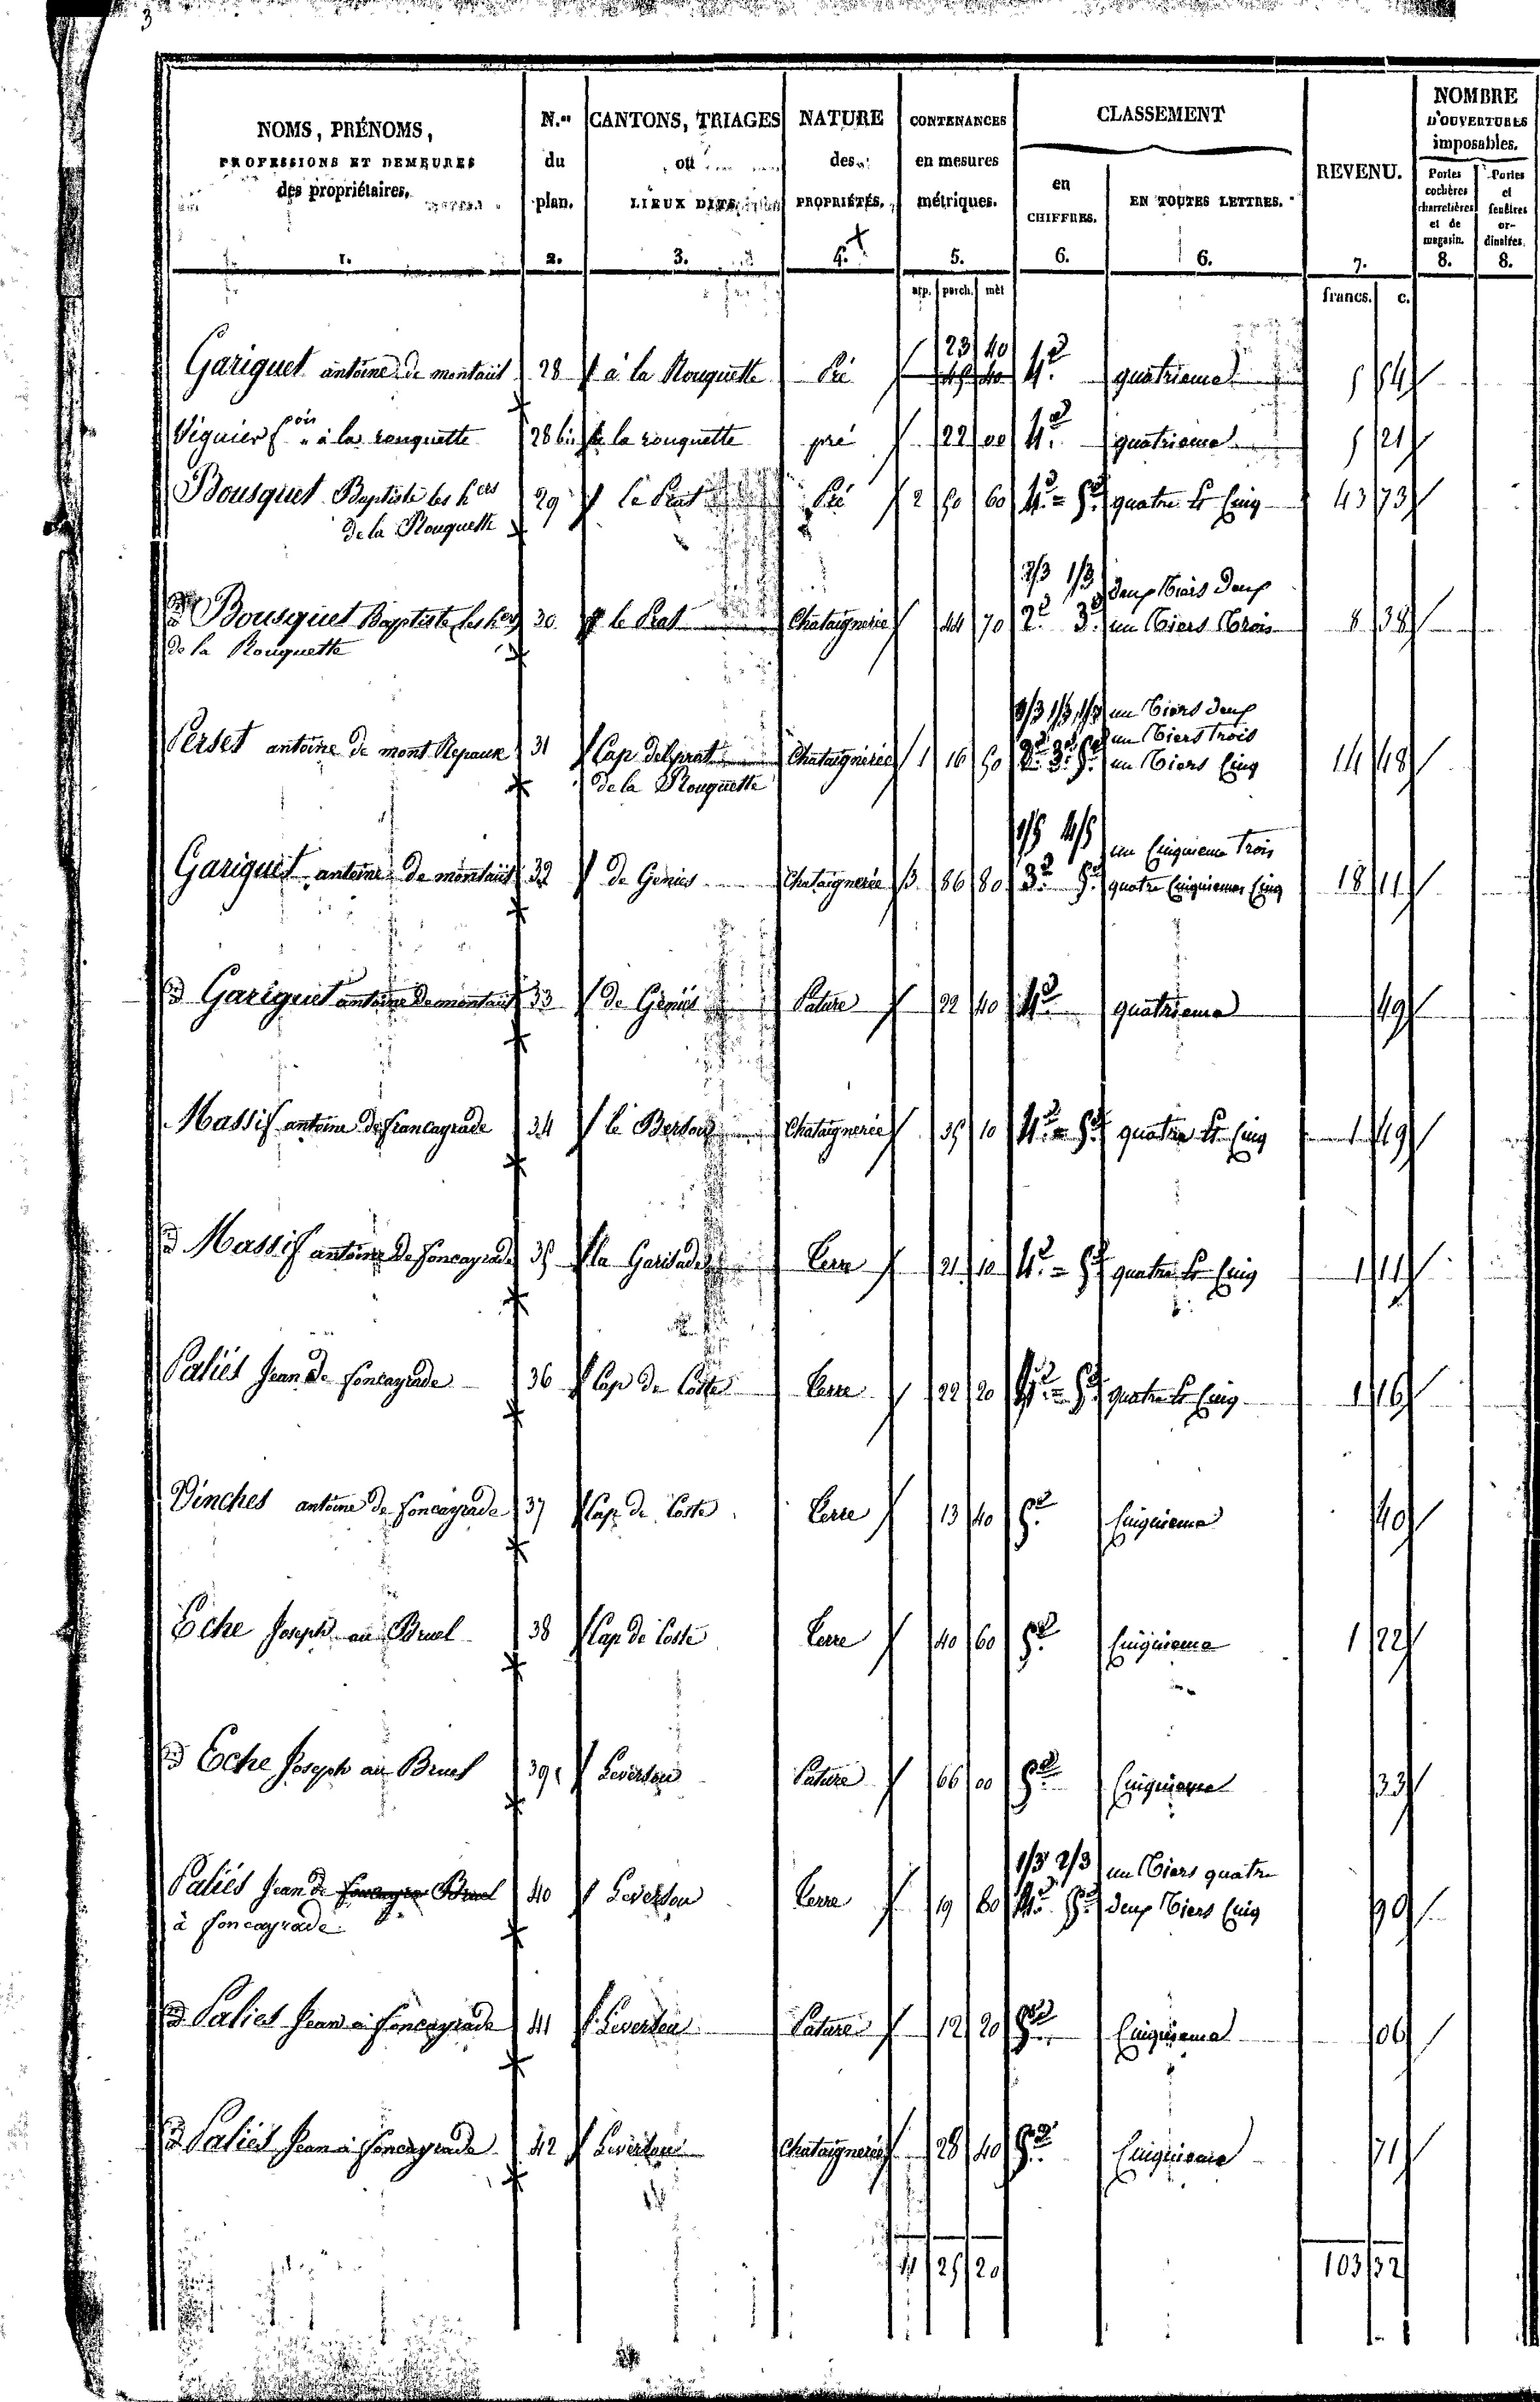 3
NOMS, PRÉNOMS, PROFESSIONS ET DEMEURES des propriétaires. 1.
N.os du plan. 2.
CANTONS, TRIAGES ou LIEUX DITS. 3.
NATURE des PROPRIÉTÉS. 4.
CONTENANCES en mesures métriques. 5.
CLASSEMENT
en CHIFFRES. 6.
EN TOUTES LETTRES. 6.
REVENU. 7.
NOMBRE D'OUVERTURES imposables.
Portes cochères charretières et de magasin. 8.
Portes et fenêtres ordinaires. 8.
arp. perch. mèt francs. c.
23 40
Gariguet antoine de montaut 28 à la Rouquette Pré 45 40 4.e quatrieme 5 54
Viguier f.ois à la rouquette 28 bis à la rouquette pré 22 00 4.e quatrieme 5 21
Bousquet Baptiste les hers 29 le Prat Pré 2 50 60 4.e = 5.e quatre et Cinq 43 73
de la Rouquette
2/3 1/3 deux tiers deux
d Bousquet Baptiste (les hers) 30 le Prat Chataignerie 44 70 2.e 3.e un tiers trois 8 38
de la Rouquette
1/3 1/3 1/3 un tiers deux
un tiers trois
Perset antoine de mont Repaux 31 Cap del prat Chataignerie 1 16 50 2.e 3.e 5.e un tiers Cinq 14 48
de la Rouquette
1/5 4/5 un Cinquieme trois
Gariguet antoine de montaut 32 de Genies Chataignerie 3 86 80 3.e 5.e quatre Cinquiemes Cinq 18 11
d Gariguet antoine de montaut 33 de Genies Pature 22 40 4.e quatrieme 49
Massif antoine de foncayrade 34 le Bertou Chataignerie 35 10 4.e = 5.e quatre et Cinq 1 49
d Massif antoine de foncayrade 35 la Garisade terre 21 10 4.e = 5.e quatre et Cinq 1 11
Paliés Jean de foncayrade 36 Cap de Coste terre 22 20 4.e = 5.e quatre et Cinq 1 16
Vinches antoine de foncayrade 37 Cap de Coste terre 13 40 5.e Cinquieme 40
Eche Joseph au Bruel 38 Cap de Coste terre 40 60 5.e Cinquieme 1 22
d Eche Joseph au Bruel 39 Leverton Pature 66 00 5.e Cinquieme 33
1/3 2/3 un tiers quatre
Paliés Jean de foncayra Bruel 40 Leverton terre 19 80 4.e 5.e deux tiers Cinq 90
à foncayrade
d Paliés Jean à foncayrade 41 Leverton Pature 12 20 5.e Cinquieme 06
d Paliés Jean à foncayrade 42 Leverton Chataignerie 28 40 5.e Cinquieme 71
11 25 20 103 32